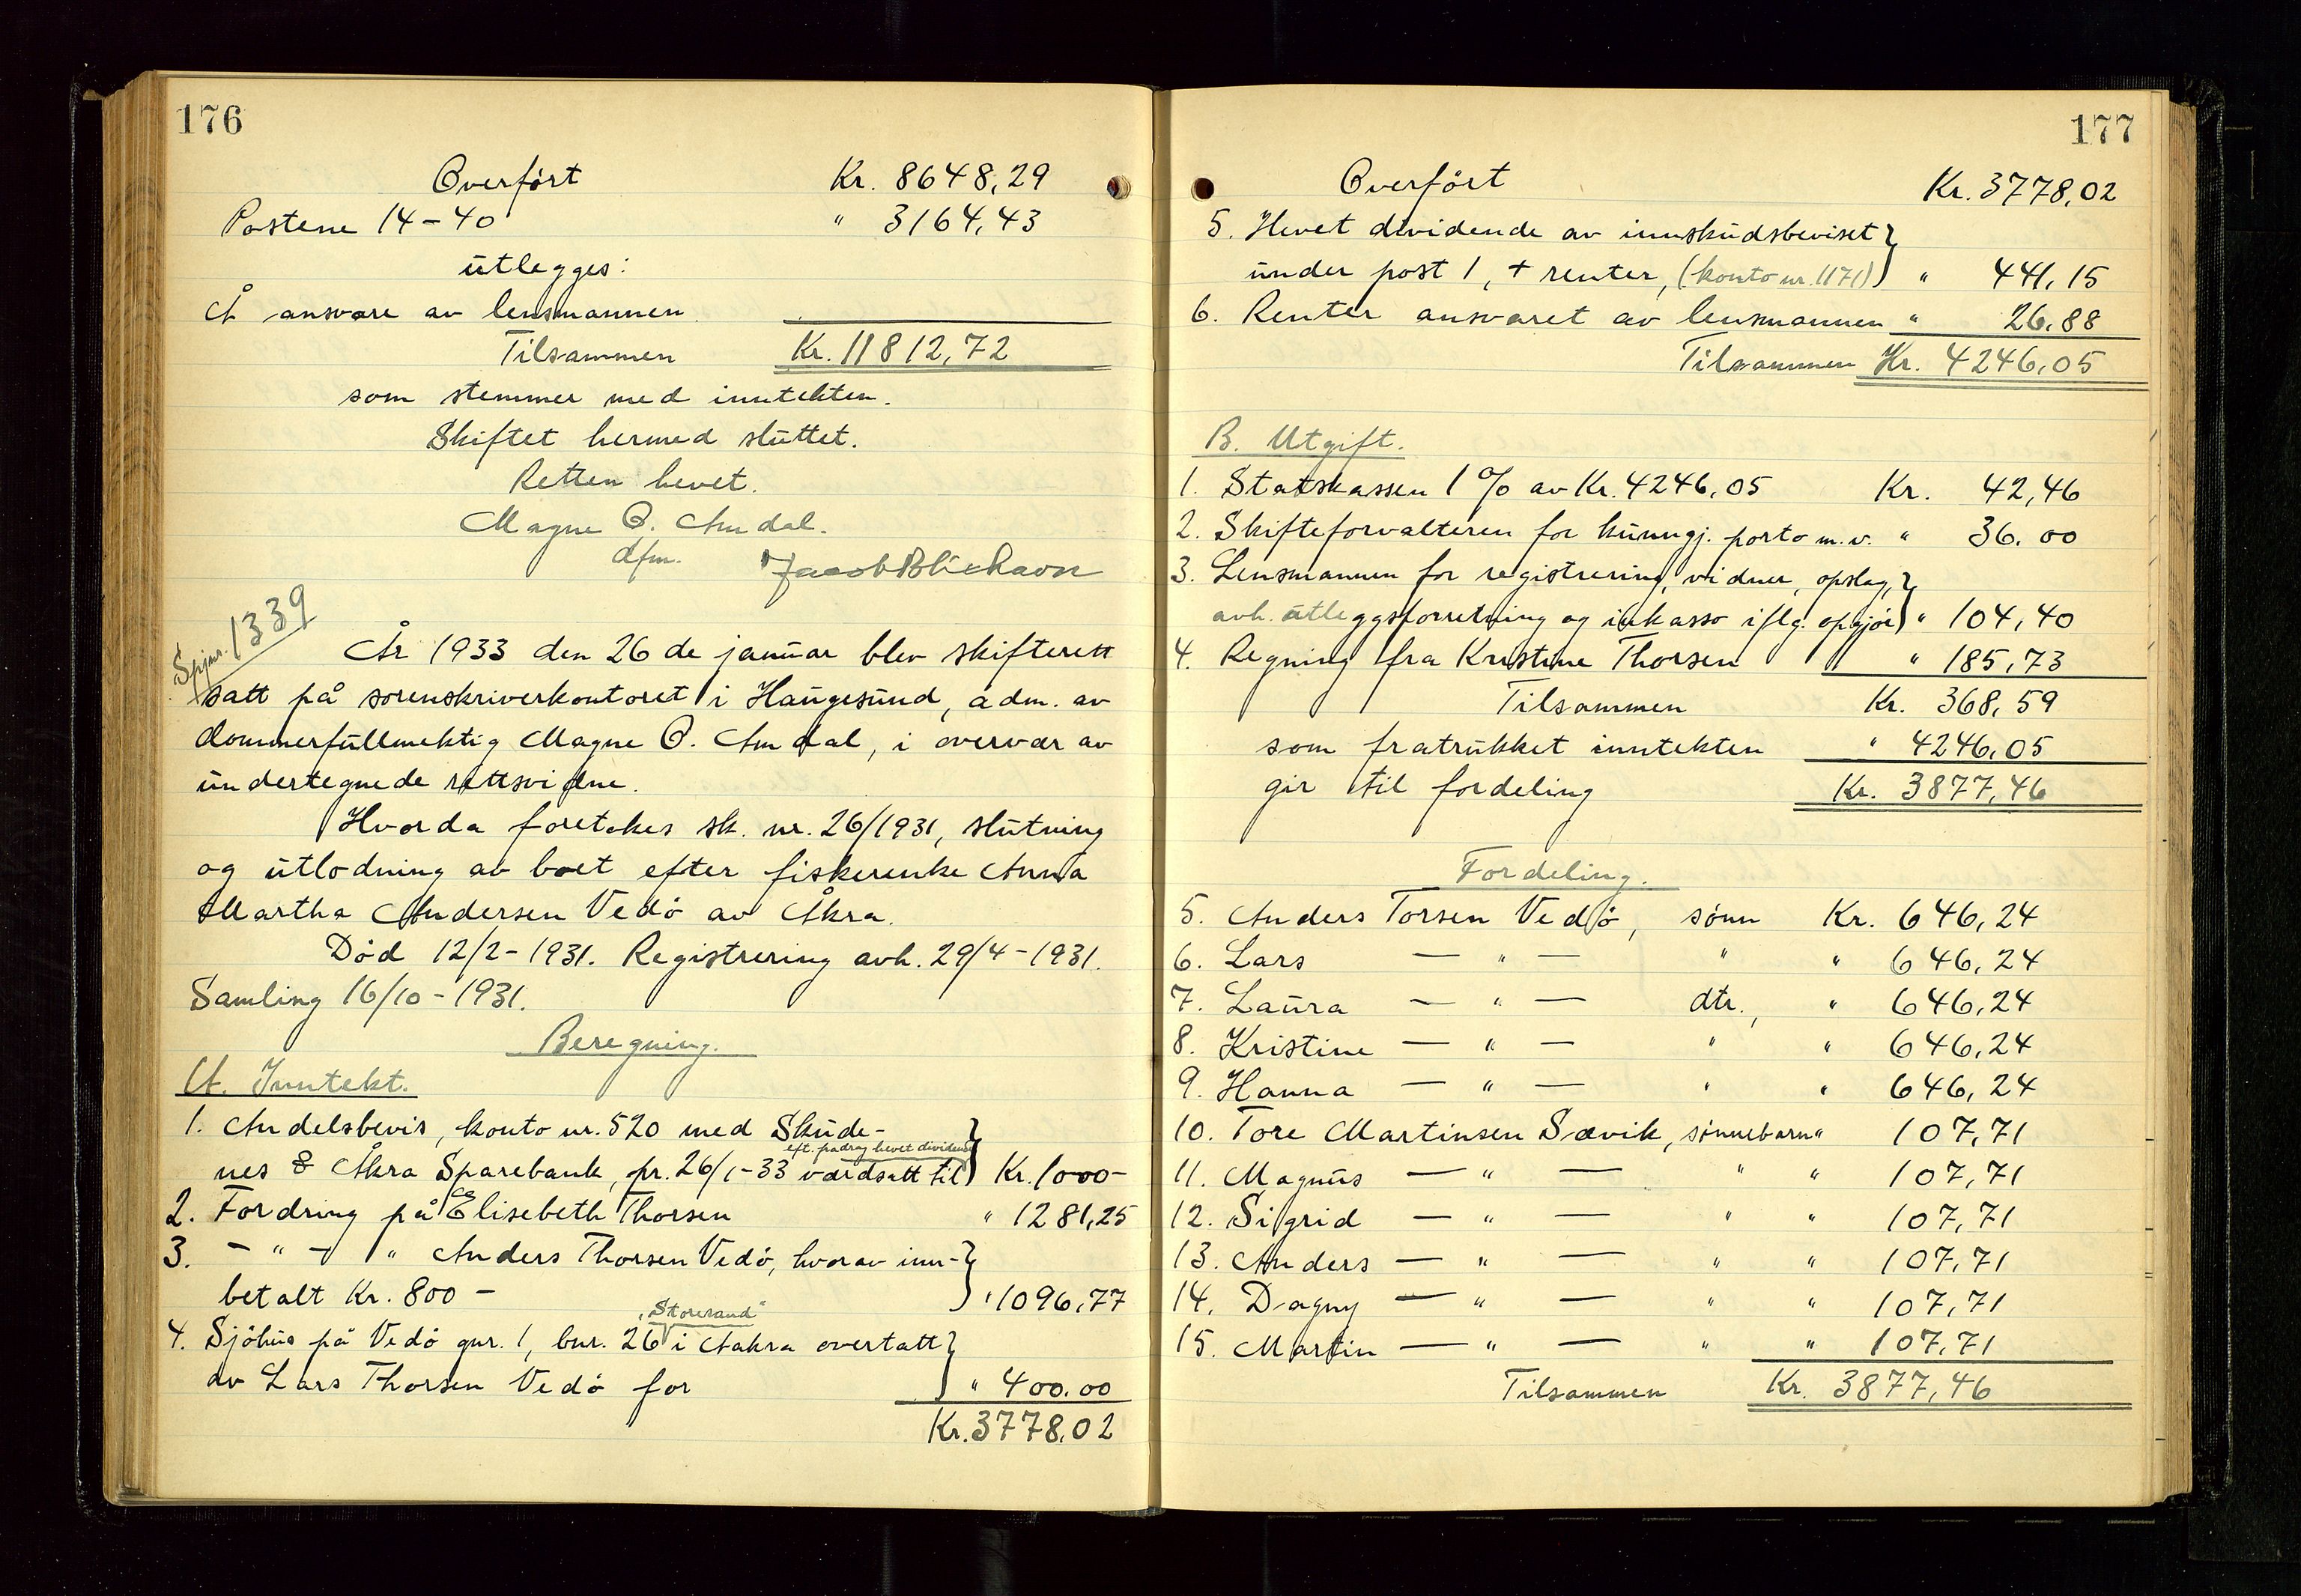 176
Overført Kr. 8648,29
Postene 14-40 " 3164,43
utlegges:
Å ansvare av lensmannen
Tilsammen Kr. 11812,72
som stemmer med inntekten.
Skiftet hermed sluttet.
Retten hevet.
Magne O. Amdal.
dfm.
1339
År 1933 den 26 de januar blev skifterett
satt på sorenskriverkontoret i Haugesund, adm. av
dommerfullmektig Magne O. Amdal, i overvær av
undertegnede rettsvidne.
Hvorda foretokes sk. nr. 26/1931, slutning
og utlodning av boet efter fiskerenke Anna
Martha Andersen Vedø av Åkra.
Død 12/2-1931. Registrering avh. 29/4-1931.
Samling 16/10-1931.
Beregning.
A. Inntekt.
1. Andelsbevis, konto nr. 520 med Skude-
eft. fradrag hevet dividende
nes & Åkra Sparebank, pr. 26/1-33 verdsatt til Kr. 1000-
2. Fordring på Elisebeth Thorsen " 1281,25
3. - " - " Anders Thorsen Vedø, hvorav inn-
betalt Kr. 800 - " 1096,77
"Storesand"
4. Sjøhus på Vedø gnr. 1, bnr. 26 i Aakra overtatt
av Lars Thorsen Vedø for " 400.00
Kr. 3778.02
177
Overført Kr. 3778,02
5. Hevet dividende av innskudsbeviset
under post 1, + renter, (konto nr. 1171) " 441,15
6. Renter ansvaret av lensmannen " 26,88
Tilsammen Kr. 4246,05
B. Utgift.
1. Statskassen 1 % av Kr. 4246,05 Kr. 42,46
2. Skifteforvalteren for kunngj. porto m.v. " 36.00
3. Lensmannen for registrering, vidner, opslag,
avh. utleggsforretning og inkasso iflg. opgjør " 104,40
4. Regning fra Kristine Thorsen " 185,73
Tilsammen Kr. 368,59
som fratrukket inntekten " 4246,05
gir til fordeling Kr. 3877,46
Fordeling.
5. Anders Torsen Vedø, sønn Kr. 646,24
6. Lars — " — " " 646,24
7. Laura — " — dtr., " 646,24
8. Kristine — " — " " 646,24
9. Hanna — " — " " 646,24
10. Tore Martinsen Sævik, sønnebarn " 107,71
11. Magnus — " — " " 107,71
12. Sigrid — " — " " 107,71
13. Anders — " — " " 107,71
14. Dagny — " — " " 107,71
15. Martin — " — " " 107,71
Tilsammen Kr. 3877,46